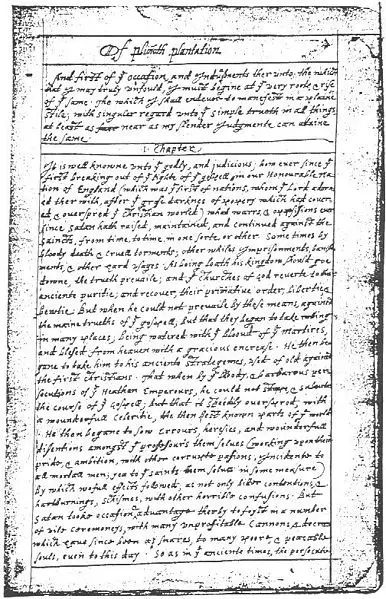 Of plimoth plantation
And first of yᵉ occasion, and Indusments ther unto; the which
that y may truly unfould, y must begine at yᵉ very roote & rise
of yᵉ same. The which y shall endevor to manefest in a plaine
stile; with singuler regard unto yᵉ simple trueth in all things,
at least as near as my slender Judgmente can attaine
the same.
1. Chapter
It is well knowne unto yᵉ godly, and judicious, how ever since yᵉ
first breaking out of yᵉ lighte of yᵉ gospell, in our Honourable na-
tion of England (which was yᵉ first of nations, whom yᵉ Lord adorn-
ed ther with, after yᵉ grosse darknes of popery which had cover-
ed & overspred yᵉ christian worled) what wars, & oppissions ever
since Satan hath raised, maintained, and continued against the
saincts, from time, to time, in one sorte, or other. Some times by
bloody death & cruell torments; other whiles ymprisonments, banish-
ments, & other hard usages. As being loath his kingdom should goe
downe, the trueth prevaile; and yᵉ Churches of god reverte to their
anciente puritie; and recover, their primative order, libertie &
bewtie. But when he could not prevaile by these means, against
the maine trueths of yᵉ gospell, but that they began to take rooting
in many places; being watered with yᵉ bloud of yᵉ martires,
and blessed from heaven with a gracious encrease. He then be-
gane to take him to his anciente strategemes, used of old against
the first christians. That when by yᵉ bloody, & barbarous per-
secutions of yᵉ Heathen Emperours, he could not stoppe, & subverte
the course of yᵉ gospell; but that it speedily overspred, with
a wounderfull celeritie, the then best known parts of yᵉ world.
He then begane to sow errours, heresies, and wounderfull
disentions amongst yᵉ professours them selves (working upon their
pride, & ambition, with other corrupte passions, yncidente to
all mortall men; yea to saints them selves in some measure)
By which wofull effects followed; as not only bitter contentions, &
hartburnings, schismes, with other horrible confusions. But
Satan tooke occasion & advantage therby to foyst in a number
of vile ceremoneys, with many unprofitable Cannons, & decrees
which have since been as snares, to many poore, & peaceable
souls, even to this day. So as in yᵉ anciente times, the persecutio-